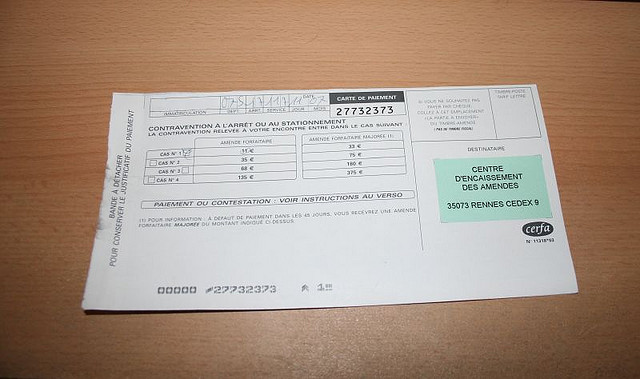 BANDE À DÉTACHER
POUR CONSERVER LE JUSTIFICATIF DU PAIEMENT
DATE
CARTE DE PAIEMENT
27732373
IMMATRICULATION
DEPT SERVICE JOUR MOIS
CONTRAVENTION A L'ARRÊT OU AU STATIONNEMENT
LA CONTRAVENTION RELEVÉE À VOTRE ENCONTRE ENTRE DANS LE CAS SUIVANT
AMENDE FORFAITAIRE
AMENDE FORFAITAIRE MAJORÉE (1)
CAS N° 1 11 € 33 €
CAS N° 2 35 € 75 €
CAS N° 3 68 € 180 €
CAS N° 4 135 € 375 €
PAIEMENT OU CONTESTATION : VOIR INSTRUCTIONS AU VERSO
(1) POUR INFORMATION : À DÉFAUT DE PAIEMENT DANS LES 45 JOURS, VOUS RECEVREZ UNE AMENDE
FORFAITAIRE MAJORÉE DU MONTANT INDIQUÉ CI-DESSUS
00000 27732373
SI VOUS NE SOUHAITEZ PAS
PAYER PAR CHÈQUE,
COLLEZ À CET EMPLACEMENT
LA PARTIE À ENVOYER
DU TIMBRE-AMENDE
(PAS DE TIMBRE FISCAL)
TIMBRE-POSTE
TARIF LETTRE
DESTINATAIRE
CENTRE
D'ENCAISSEMENT
DES AMENDES
35073 RENNES CEDEX 9
cerfa